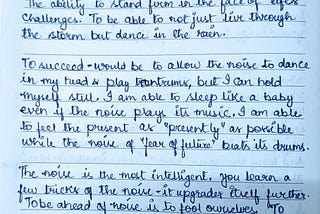 The ability to stand form in the face of life's
challenges. To be able to not just live through
the storm but dance in the rain.
To succeed - would be to allow the noise to dance
in my head & play tantrums, but I can hold
myself still. I am able to sleep like a baby
even if the noise plays its music. I am able
to feel the present as "presently" as possible
while the noise of "fear of future" beats its drums.
The noise is the most intelligent, you learn a
few tricks of the noise - it upgrades itself further.
To be ahead of noise is to fool ourselves. To